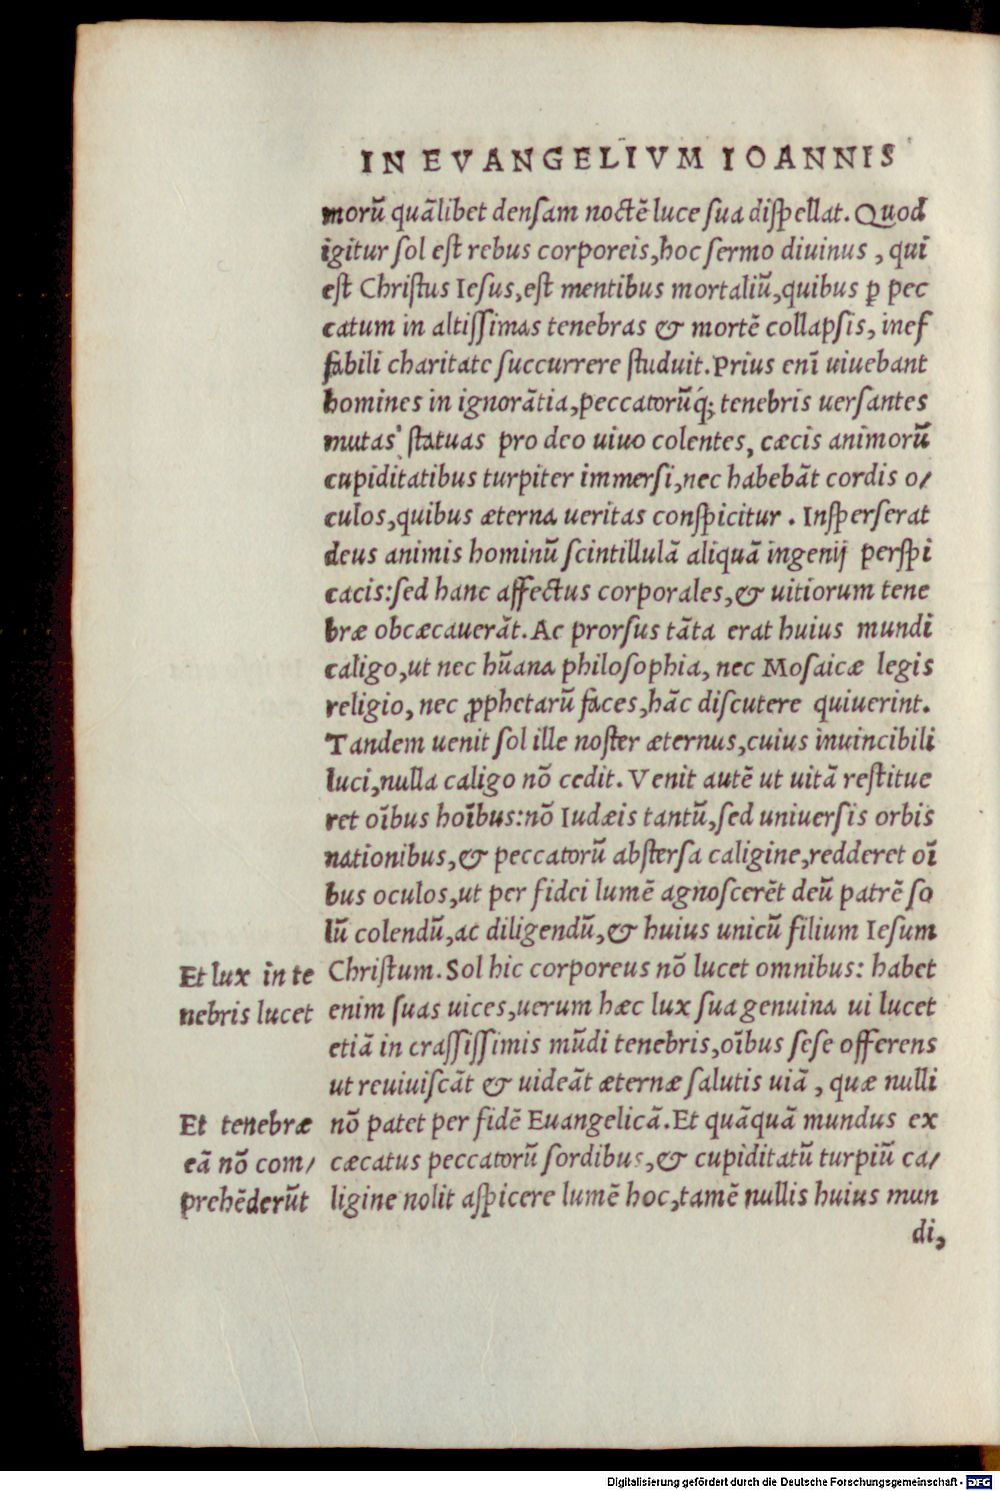 IN EVANGELIVM IOANNIS
morũ quãlibet densam noctẽ luce sua dispellat. Quod
igitur sol est rebus corporeis, hoc sermo diuinus, qui
est Christus Iesus, est mentibus mortaliũ, quibus ꝑ pec
catum in altissimas tenebras & mortẽ collapsis, inef
fabili charitate succurrere studuit. Prius enĩ uiuebant
homines in ignorãtia, peccatorũq́; tenebris uersantes
mutas statuas pro deo uiuo colentes, cæcis animorũ
cupiditatibus turpiter immersi, nec habebãt cordis o/
culos, quibus æterna ueritas conspicitur. Insperserat
deus animis hominũ scintillulã aliquã ingenij perspi
cacis: sed hanc affectus corporales, & uitiorum tene
bræ obcæcauerãt. Ac prorsus tãta erat huius mundi
caligo, ut nec hũana philosophia, nec Mosaicæ legis
religio, nec ꝓphetarũ faces, hãc discutere quiuerint.
Tandem uenit sol ille noster æternus, cuius inuincibili
luci, nulla caligo nõ cedit. Venit autẽ ut uitã restitue
ret oĩbus hoĩbus: nõ Iudæis tantũ, sed uniuersis orbis
nationibus, & peccatorũ abstersa caligine, redderet oĩ
bus oculos, ut per fidei lumẽ agnoscerẽt deũ patrẽ so
lũ colendũ, ac diligendũ, & huius unicũ filium Iesum
Christum. Sol hic corporeus nõ lucet omnibus: habet
enim suas uices, uerum hæc lux sua genuina ui lucet
etiã in crassissimis mũdi tenebris, oĩbus sese offerens
ut reuiuiscãt & uideãt æternæ salutis uiã, quæ nulli
nõ patet per fidẽ Euangelicã. Et quãquã mundus ex
cæcatus peccatorũ sordibus, & cupiditatũ turpiũ ca/
ligine nolit aspicere lumẽ hoc, tamẽ nullis huius mun
di,
Et lux in te
nebris lucet
Et tenebræ
eã nõ com/
prehẽderũt
Digitalisierung gefördert durch die Deutsche Forschungsgemeinschaft - DFG